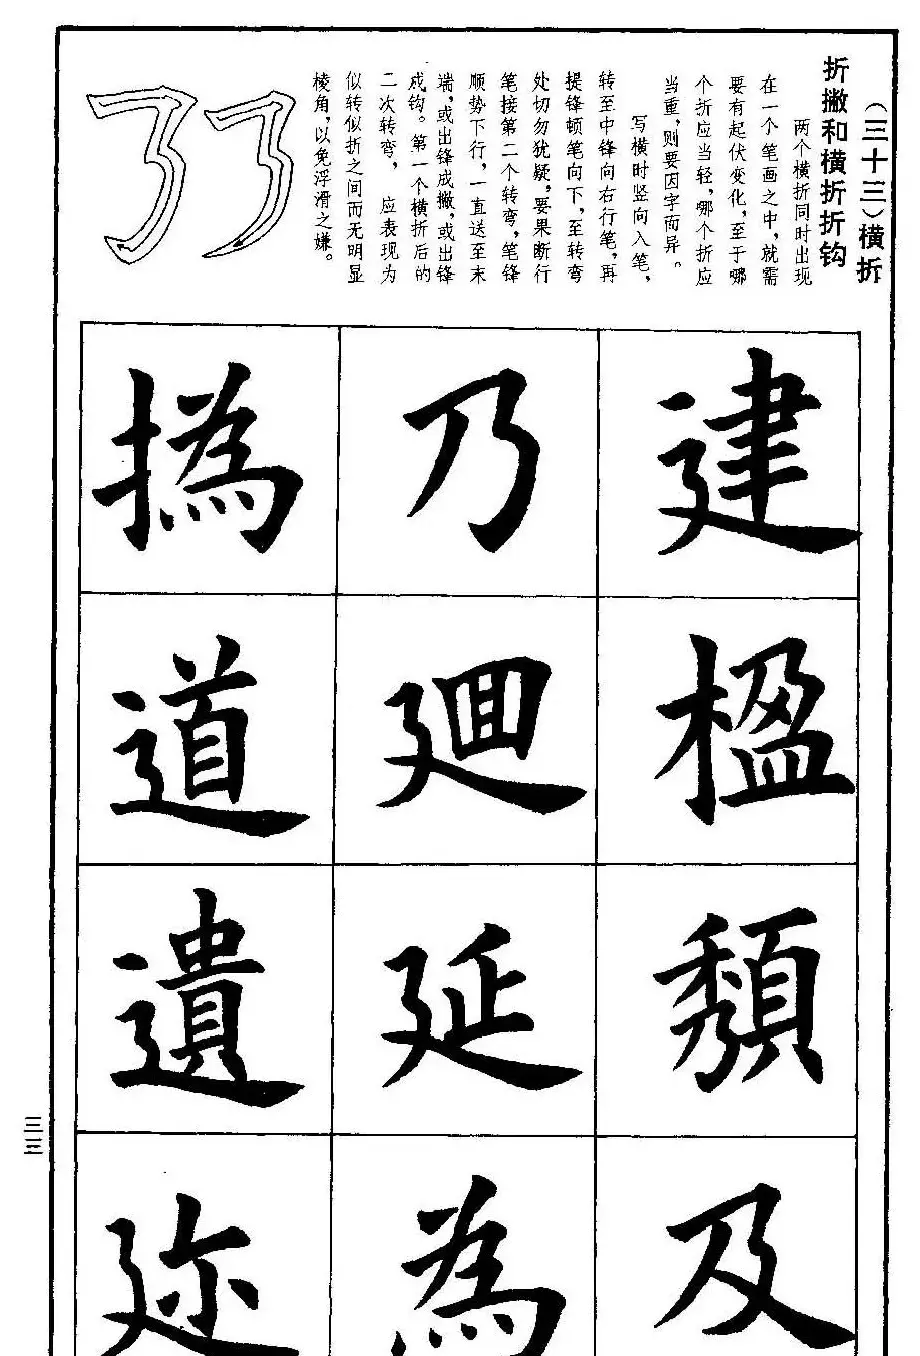 (三十三)横折
折撇和横折折钩
两个横折同时出现
在一个笔画之中,就需
要有起伏变化,至于哪
个折应当轻,哪个折应
当重,则要因字而异。
写横时竖向入笔,
转至中锋向右行笔,再
提锋顿笔向下,至转弯
处切勿犹疑,要果断行
笔接第二个转弯,笔锋
顺势下行,一直送至末
端,或出锋成撇,或出锋
成钩。第一个横折后的
二次转弯,应表现为
似转似折之间而无明显
棱角,以免浮滑之嫌。
建
楹
頽
及
乃
廻
延
為
撝
道
遺
迩
三三